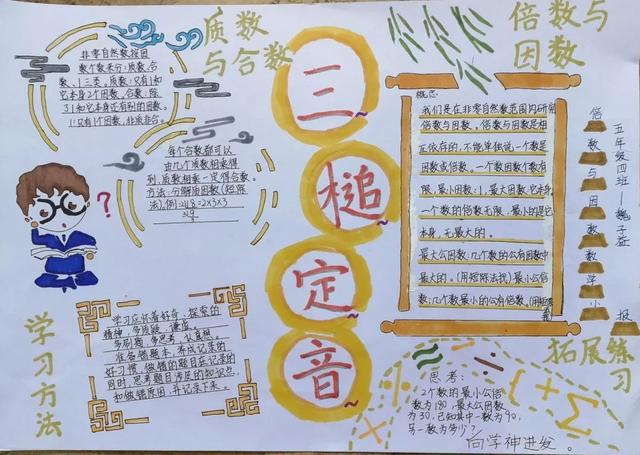 质数
与合数
非零自然数按因
数个数来分:质数、合
数、1三类。质数:只有1和
它本身2个因数。合数:除
了1和它本身还有别的因数。
1:只有1个因数,非质非合。
每个合数都可以
由几个质数相乘得
到,质数相乘一定得合数。
方法:分解质因数(短除
法)。例:18=2×3×3
学习方法
学习应怀着好奇、探索的
精神,多质疑,谦虚。
多刷题,多思考,认真想。
准备错题本,养成记录的
好习惯,做错的题目在记录的
同时,思考题目涉及的知识点
和做错原因,并记录下来。
三
槌
定
音
倍数与
因数
概念
我们是在非零自然数范围内研究
倍数与因数。倍数与因数是相
互依存的,不能单独说一个数是
因数或倍数。一个数因数个数有
限,最小因数:1,最大因数它本身。
一个数的倍数无限,最小的是它
本身,无最大的。
最大公因数:几个数的公有因数中
最大的。(用短除法找)最小公倍
数:几个数最小的公有倍数。(用短除
倍数与因数数学小报
五年级四班—魏子益
拓展练
习
思考:
2个数的最小公倍
数为180,最大公因数
为30,已知其中一数为90,
另一数为多少?
向学神进发。